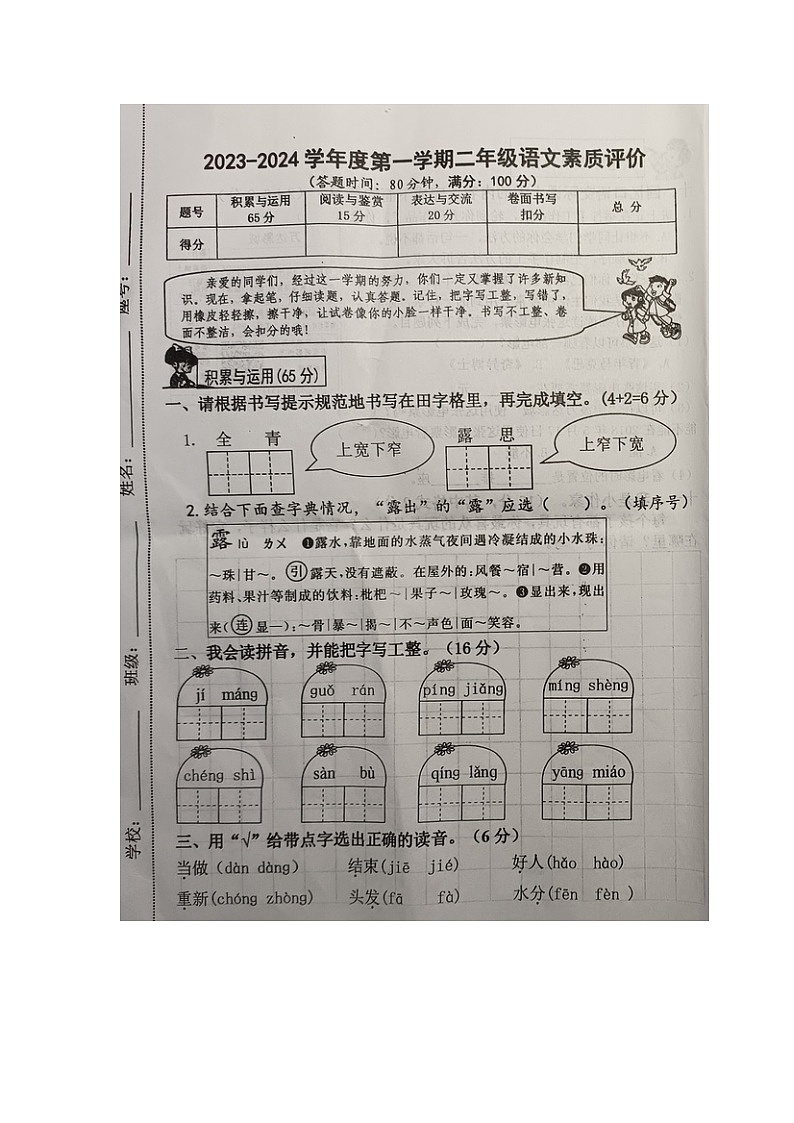 2023-2024学年度第一学期二年级语文素质评价
(答题时间：80分钟，满分：100分)
题号 积累与运用 65分 阅读与鉴赏 15分 表达与交流 20分 卷面书写 扣分 总 分
得分
亲爱的同学们，经过这一学期的努力，你们一定又掌握了许多新知
识。现在，拿起笔，仔细读题，认真答题。记住，把字写工整，写错了，
用橡皮轻轻擦，擦干净，让试卷像你的小脸一样干净。书写不工整、卷
面不整洁，会扣分的哦！
积累与运用(65分)
一、请根据书写提示规范地书写在田字格里，再完成填空。(4+2=6分)
1. 全 青 上宽下窄 露 思 上窄下宽
2.结合下面查字典情况，“露出”的“露”应选（ ）。（填序号）
露 lù ㄌㄨ ❶露水,靠地面的水蒸气夜间遇冷凝结成的小水珠:
～珠|甘～。㊁引 露天,没有遮蔽。在屋外的:风餐～宿|～营。❷用
药料、果汁等制成的饮料:枇杷～|果子～|玫瑰～。❸显出来,现出
来(连 显—):～骨|暴～|揭～|不～声色|面～笑容。
二、我会读拼音，并能把字写工整。(16分)
jí máng guǒ rán píng jiǎng míng shèng
chéng shì sàn bù qíng lǎng yāng miáo
三、用“√”给带点字选出正确的读音。(6分)
当做(dàn dàng) 结束(jiē jié) 好人(hǎo hào)
重新(chóng zhòng) 头发(fā fà) 水分(fēn fèn )
学校：
班级：
姓名：
座号：